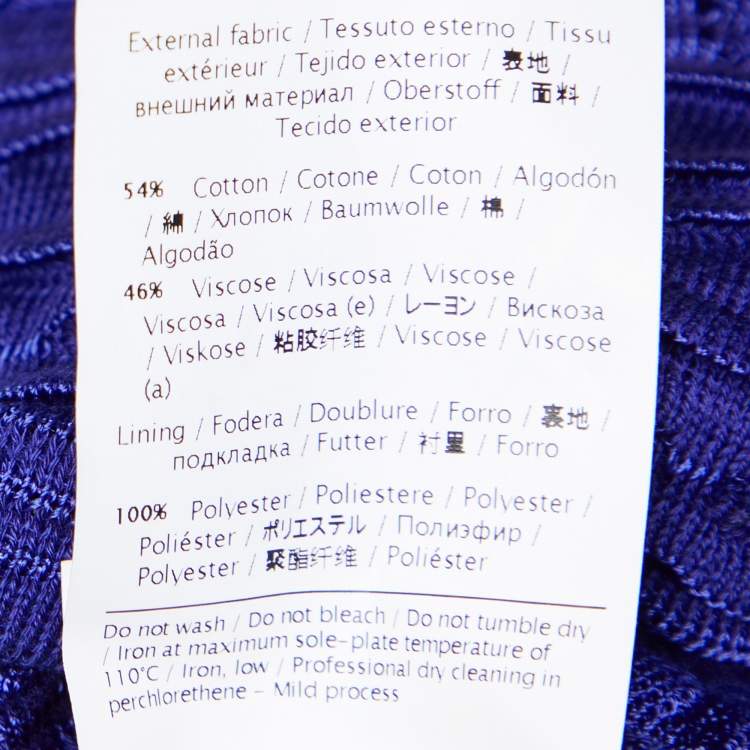 External fabric / Tessuto esterno / Tissu
extérieur / Tejido exterior / 表地 /
внешний материал / Oberstoff / 面料 /
Tecido exterior
54% Cotton / Cotone / Coton / Algodón
/ 綿 / Хлопок / Baumwolle / 棉 /
Algodão
46% Viscose / Viscosa / Viscose /
Viscosa / Viscosa (e) / レーヨン / Вискоза
/ Viskose / 粘胶纤维 / Viscose / Viscose
(a)
Lining / Fodera / Doublure / Forro / 裏地 /
подкладка / Futter / 衬里 / Forro
100% Polyester / Poliestere / Polyester /
Poliéster / ポリエステル / Полиэфир /
Polyester / 聚酯纤维 / Poliéster
Do not wash / Do not bleach / Do not tumble dry
/ Iron at maximum sole-plate temperature of
110°C / Iron, low / Professional dry cleaning in
perchlorethene - Mild process